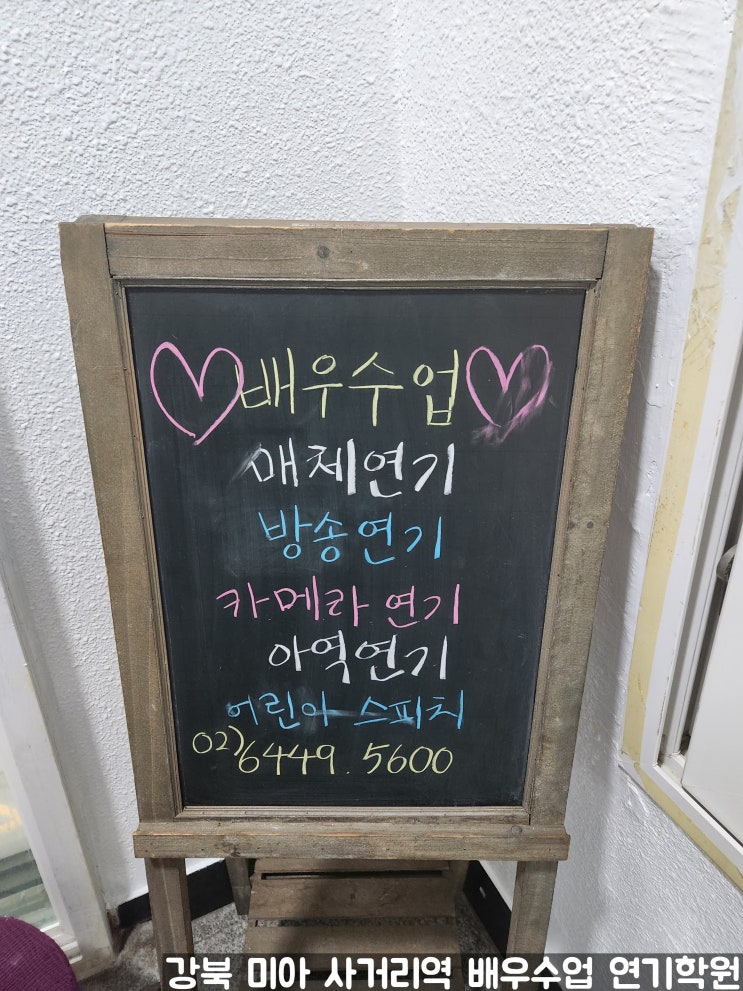 배우수업
매체연기
방송연기
카메라 연기
아역연기
어린아 스피치
02)6449.5600
강북 미아 사거리역 배우수업 연기학원